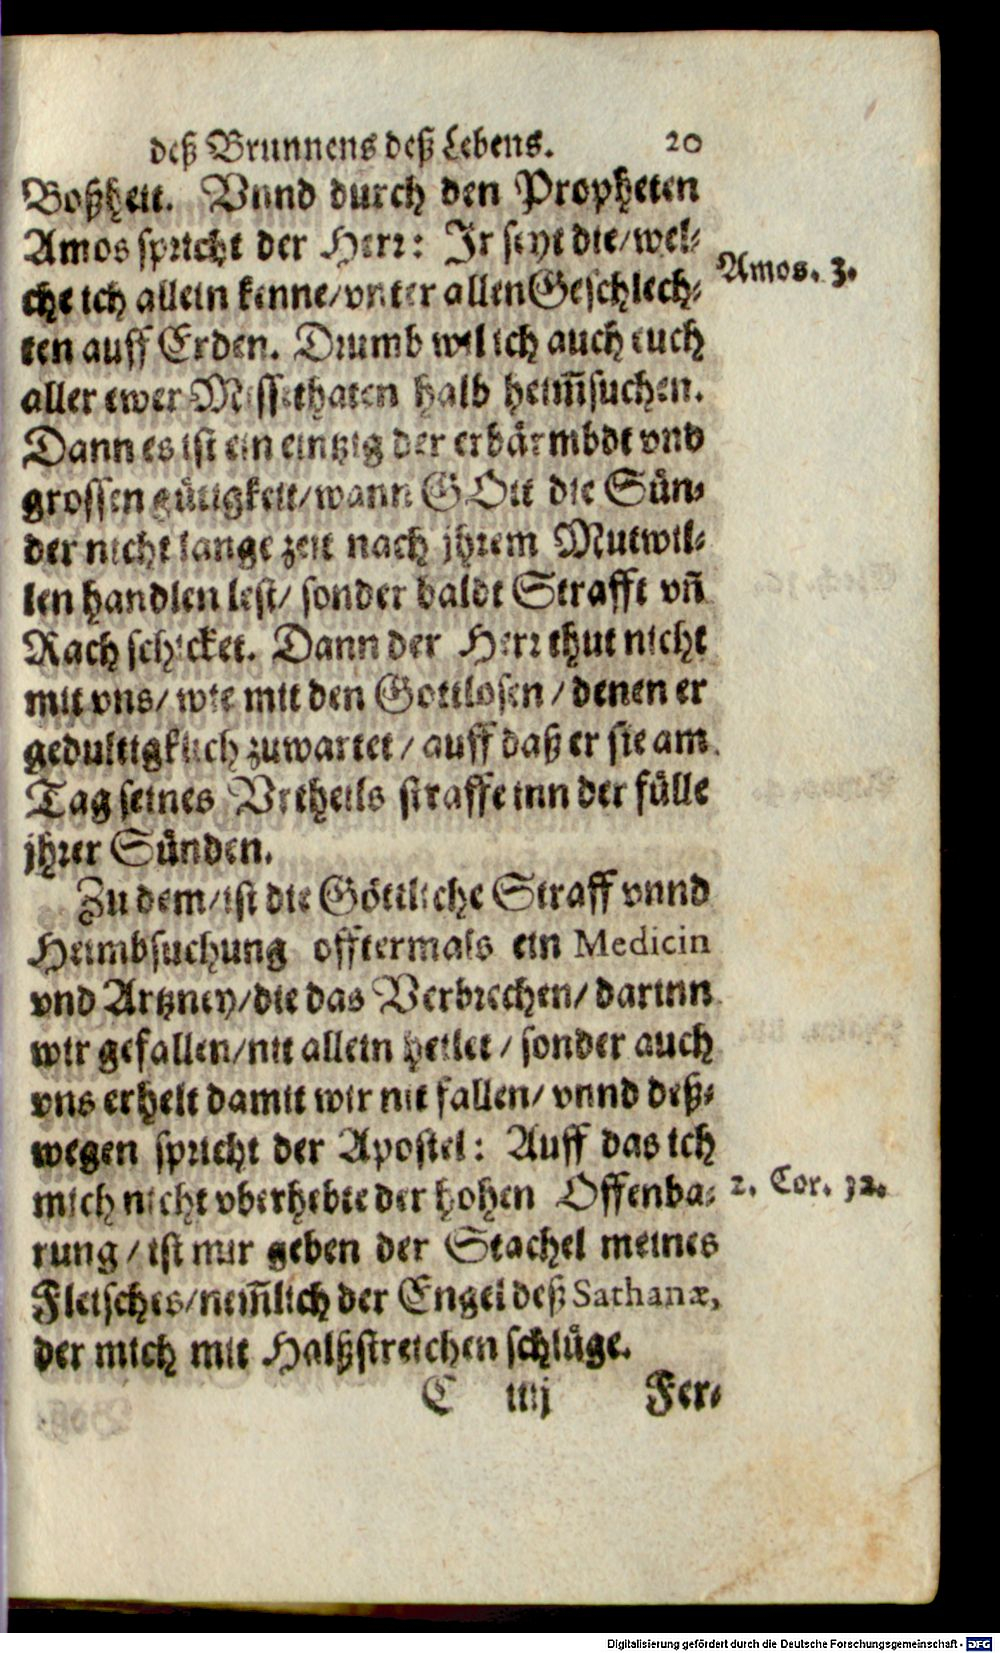 deß Brunnens deß Lebens. 20
Boßheit. Vnnd durch den Propheten
Amos spricht der Herr: Jr seyt die/wel-
Amos. 3.
che ich allein kenne/vnter allen Geschlech-
ten auff Erden. Drumb wil ich auch euch
aller ewer Missethaten halb heim̃suchen.
Dann es ist ein eintzig der erbärmbdt vnd
grossen gütigkeit/wann GOtt die Sün-
der nicht lange zeit nach jhrem Mutwil-
len handlen lest/ sonder baldt Strafft vñ
Rach schicket. Dann der Herr thut nicht
mit vns/ wie mit den Gottlosen / denen er
gedultigklich zuwartet / auff daß er sie am
Tag seines Vrtheils straffe inn der fülle
jhrer Sünden.
Zu dem/ist die Göttliche Straff vnnd
Heimbsuchung offtermals ein Medicin
vnd Artzney/die das Verbrechen/ darinn
wir gefallen/nit allein heilet / sonder auch
vns erhelt damit wir nit fallen/ vnnd deß-
wegen spricht der Apostel: Auff das ich
mich nicht vberhebte der hohen Offenba-
2. Cor. 12.
rung / ist mir geben der Stachel meines
Fleisches/nem̃lich der Engel deß Sathanæ,
der mich mit Halßstreichen schlüge.
C iiij Fer-
Digitalisierung gefördert durch die Deutsche Forschungsgemeinschaft - DFG